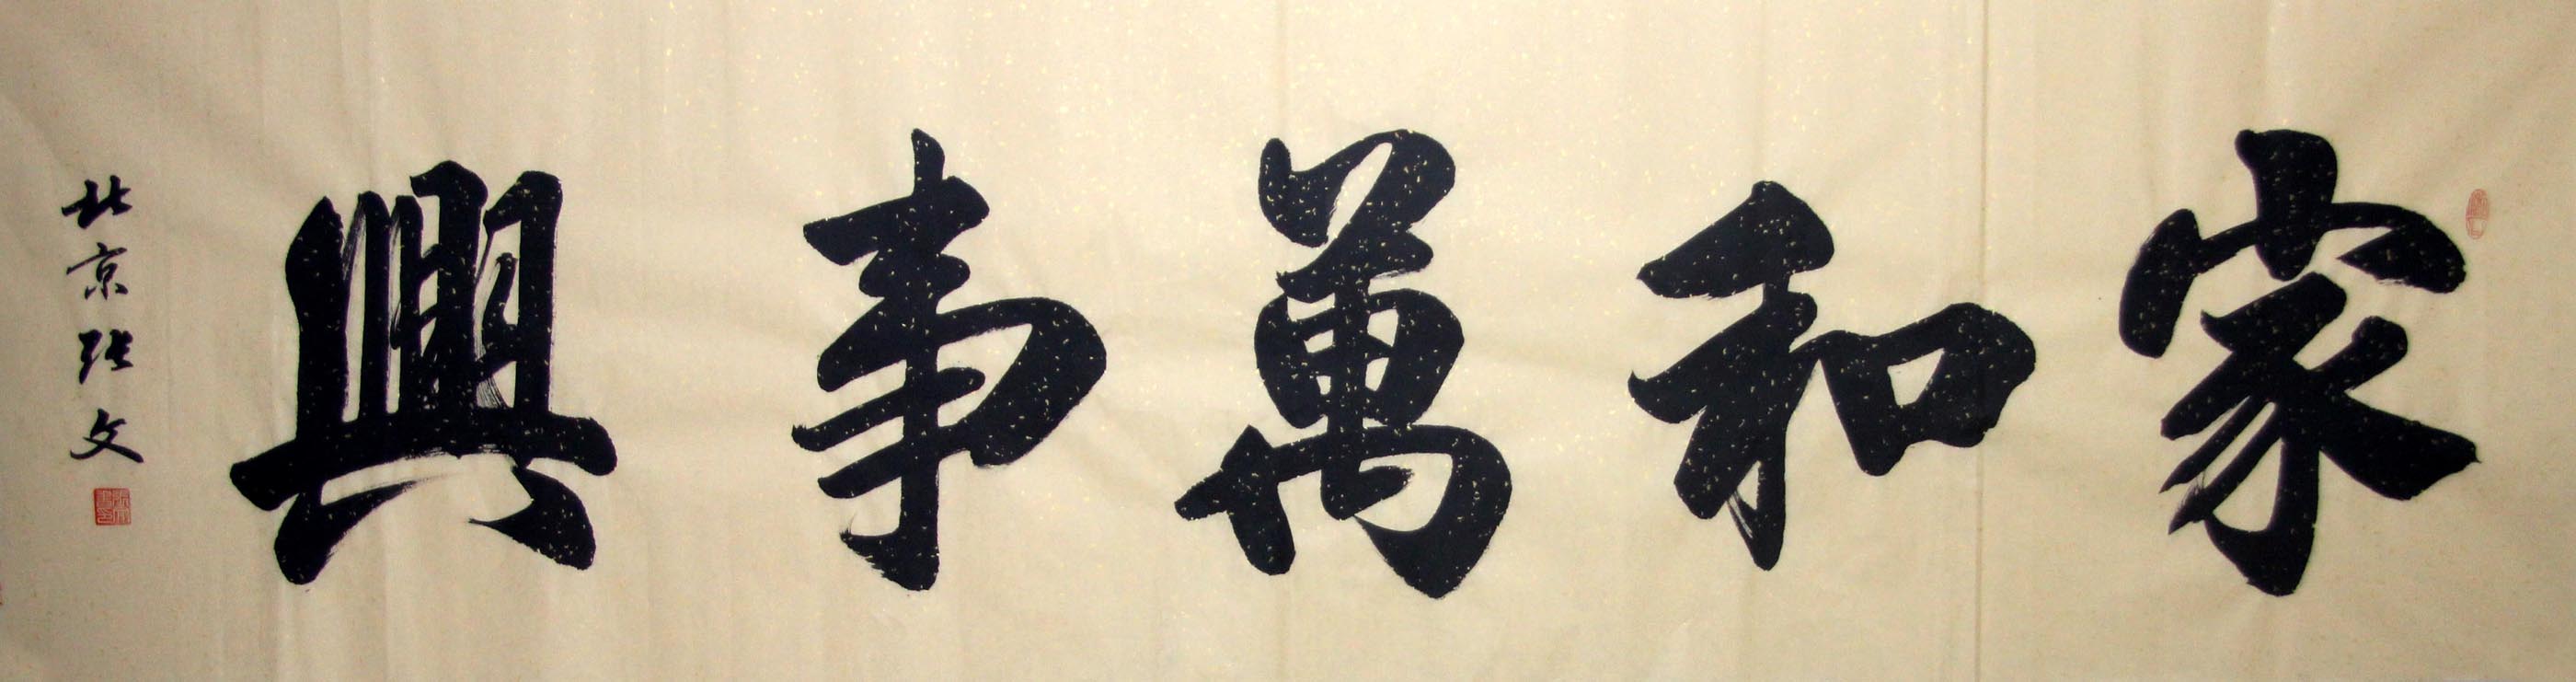 家和萬事興
北京張文